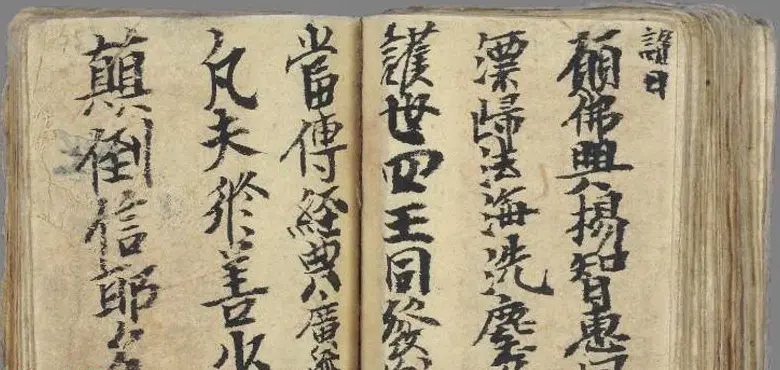 讃曰
願佛興揚智惠
漂歸法海洗塵
護世四王同發
當傳經典廣
凡夫修善少
顛倒信耶